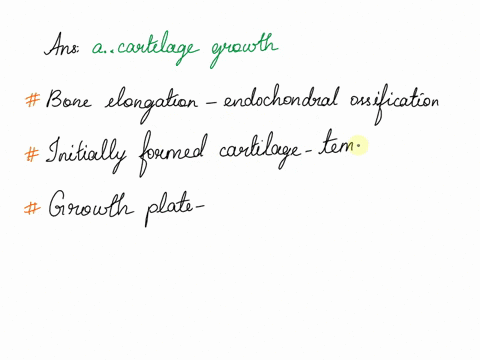 Ans: a..cartilage growth
# Bone elongation - endochondral ossification
# Initially formed cartilage - tem
# Growth plate -